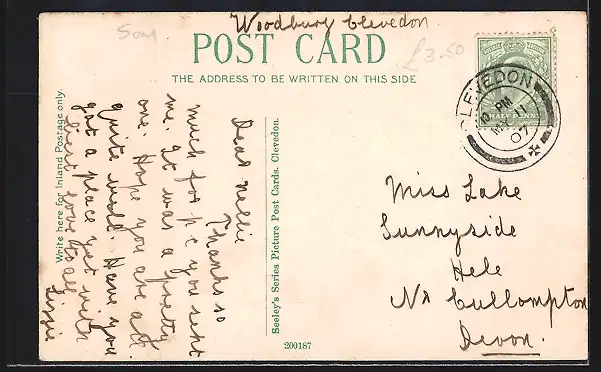 Woodbury Clevedon
50M
£3.50
POST CARD
THE ADDRESS TO BE WRITTEN ON THIS SIDE
CLEVEDON
10 PM
MY 11
07
HALF PENNY
Write here for Inland Postage only.
Dear Nellie
Thanks so
much for p c you sent
me. It was a pretty
one. Hope you are all
quite well. Have you
got a place yet with
best love to all
Lizzie
Seeley's Series Picture Post Cards. Clevedon.
200187
Miss Lake
Sunnyside
Hele
Nr Cullompton
Devon.